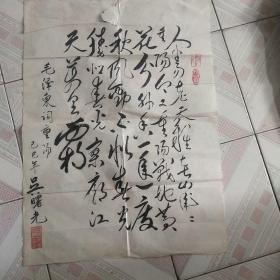 人生易老天难老岁〻
重阳今又重阳战地黄
花分外香一年一度
秋风劲不似春光
胜似春光寥廓江
天万里霜
毛泽东词重阳
己巳年吴曙光